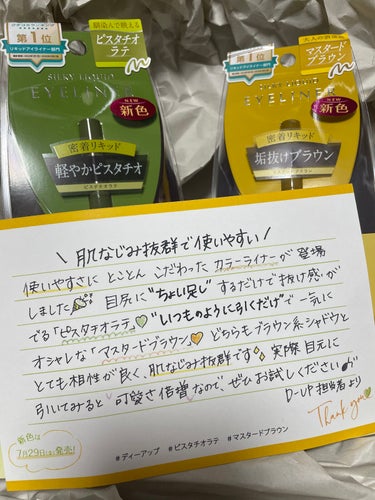 第1位
リキッドアイライナー部門
ピスタチオ
ラテ
SILKY LIQUID
EYELINER
NEW
新色
密着リキッド
軽やかピスタチオ
ピスタチオラテ
第1位
リキッドアイライナー部門
マスタード
ブラウン
SILKY LIQUID
EYELINER
NEW
新色
密着リキッド
垢抜けブラウン
\ 肌なじみ抜群で使いやすい /
使いやすさに とことん こだわった カラーライナーが 登場
しました🎉 目尻に"ちょい足し"するだけで抜け感が
でる「ピスタチオラテ」💚 "いつものように引くだけ"で一気に
オシャレな「マスタードブラウン」💛 どちらもブラウン系シャドウと
とても相性が良く、肌なじみ抜群です✨ 実際 目元に
引いてみると 可愛さ倍増なので、ぜひお試しください♪
D-UP 担当者より
Thank you
新色は
7月29日(金)発売!
#ディーアップ #ピスタチオラテ #マスタードブラウン